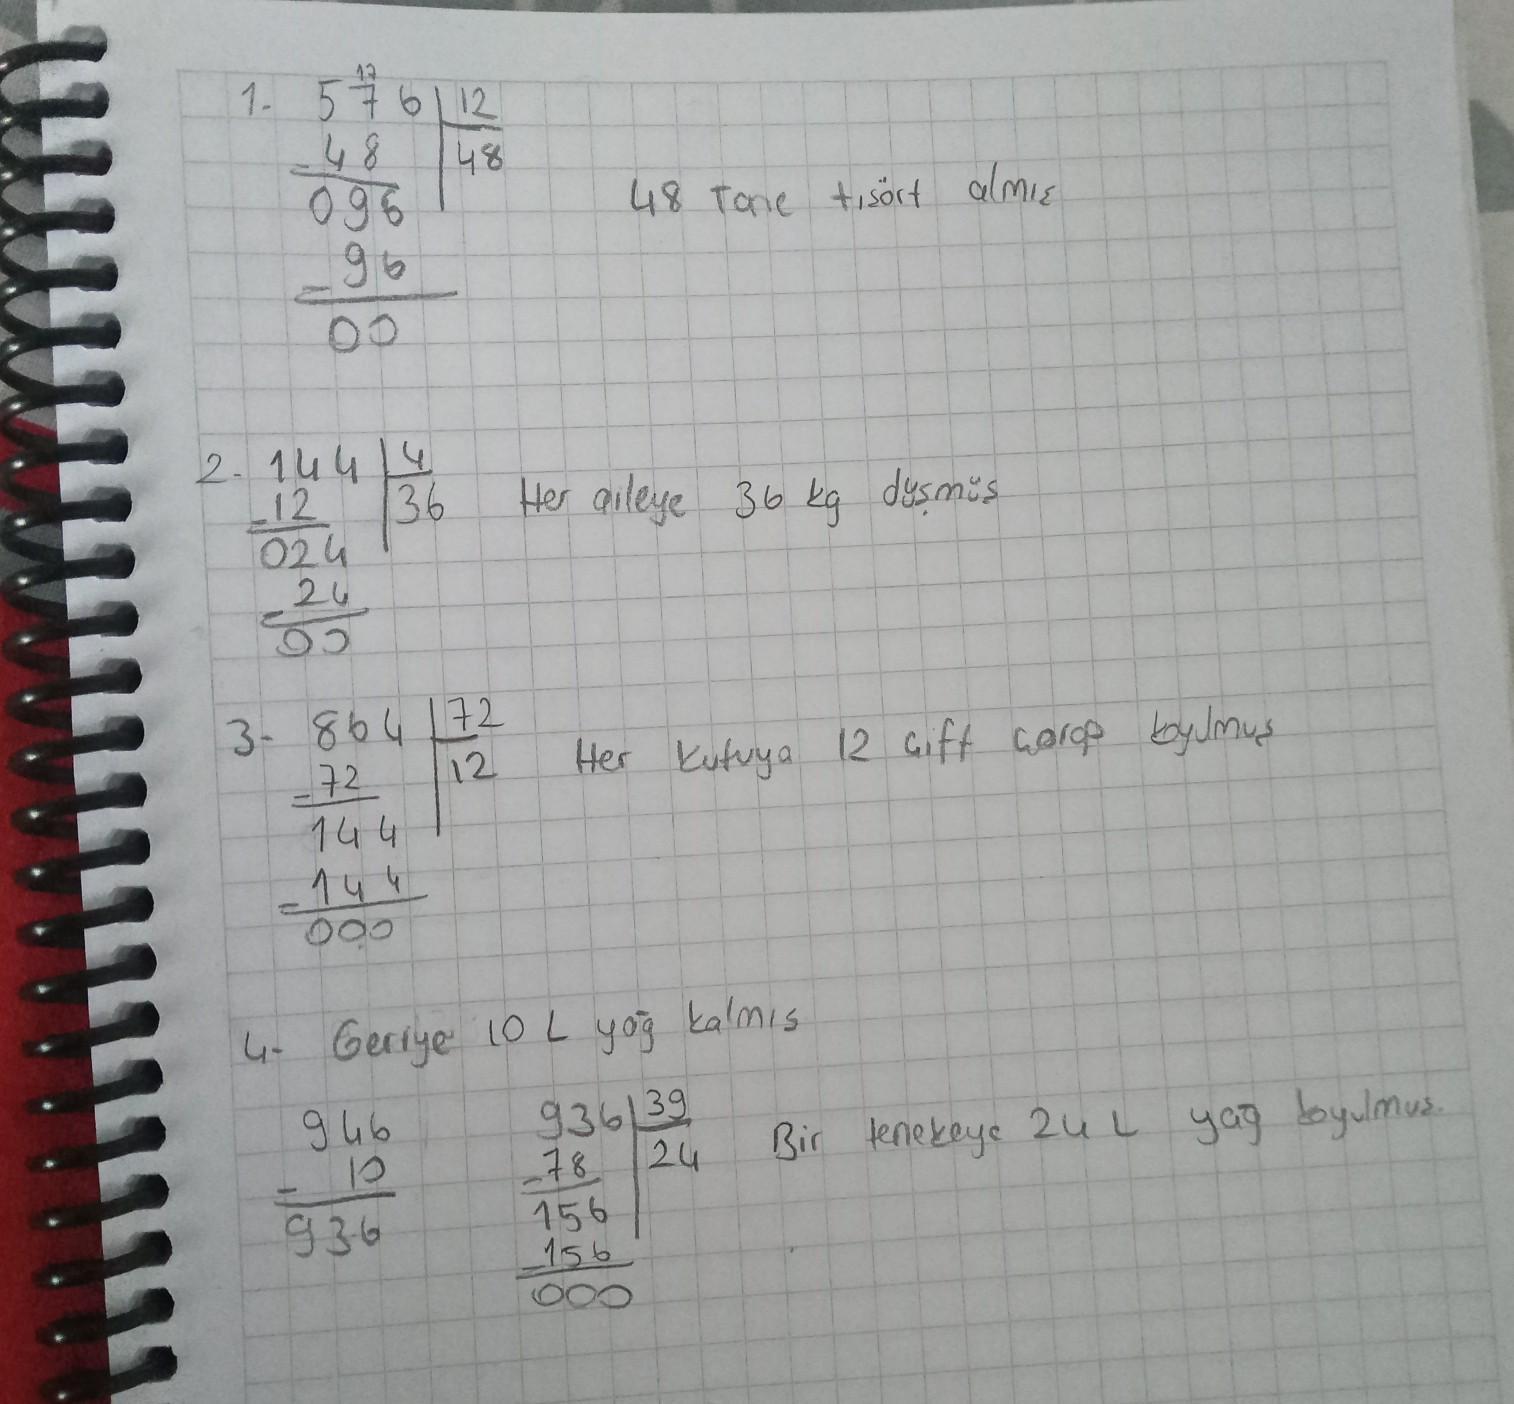 17
1- 576 12
- 48 48
096
48 Tane tişört almış
- 96
00
2- 144 4
- 12 36 Her aileye 36 kg düşmüş
024
- 24
00
3- 864 72
- 72 12 Her kutuya 12 çift çorap koyulmuş
144
- 144
000
4- Geriye 10 L yağ kalmış
946 936 39
- 10 - 78 24 Bir tenekeye 24 L yağ koyulmuş.
936 156
- 156
000